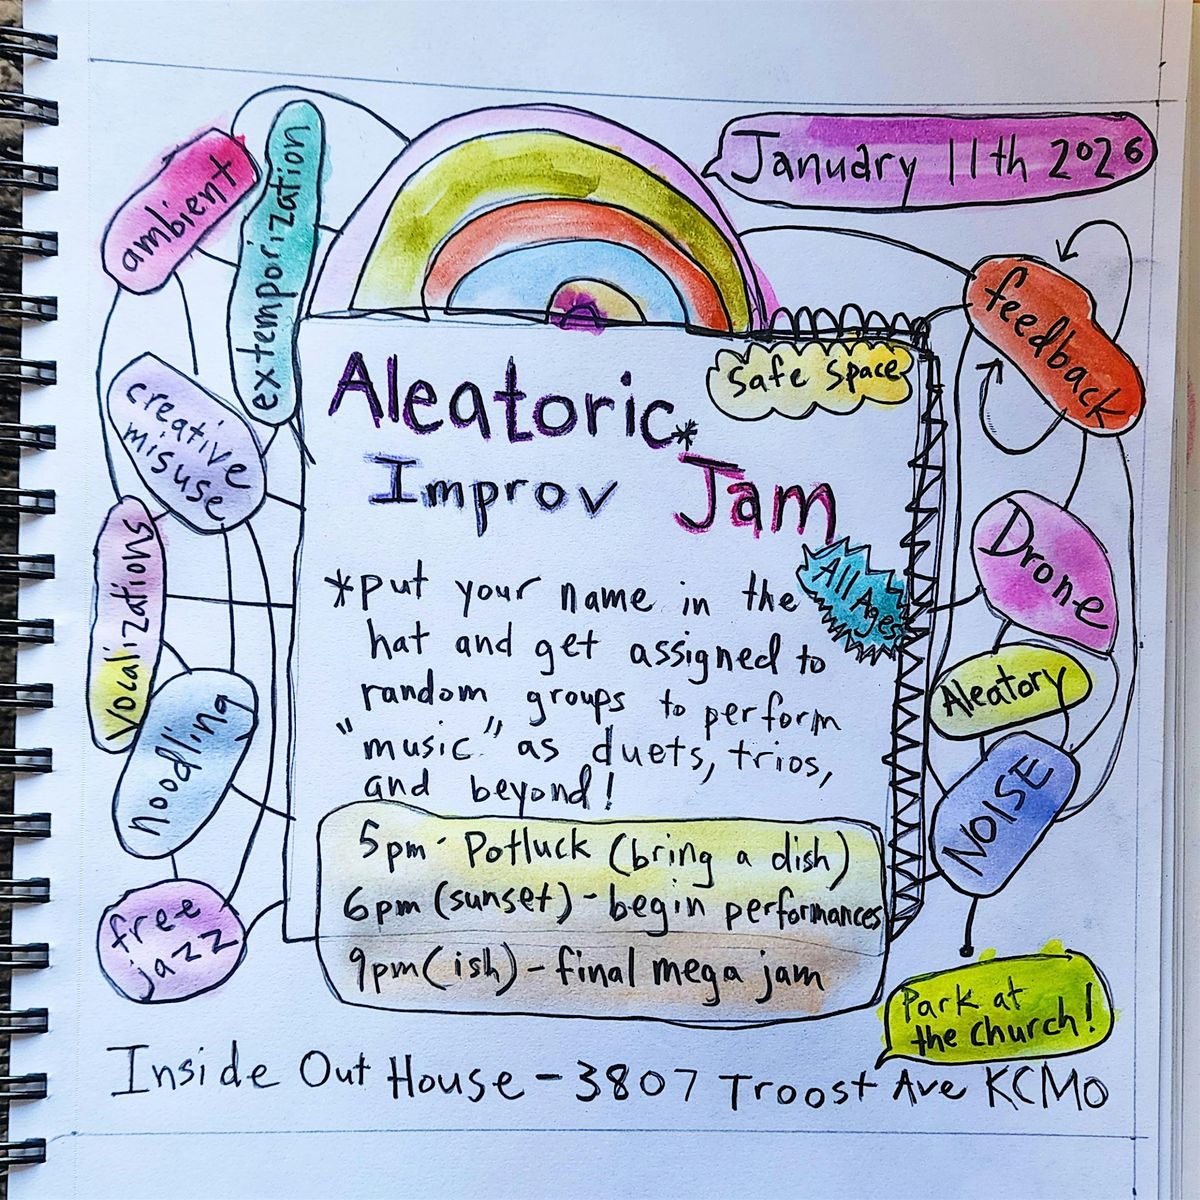 January 11th 2026
ambient
extemporization
feedback
Safe Space
Aleatoric*
Improv Jam
creative
misuse
Drone
All Ages
*put your name in the
hat and get assigned to
random groups to perform
"music" as duets, trios,
and beyond!
vocalizations
Aleatory
noodling
NOISE
5pm - Potluck (bring a dish)
6pm (sunset) - begin performances
9pm (ish) - final mega jam
free
jazz
Park at
the church!
Inside Out House - 3807 Troost Ave KCMO